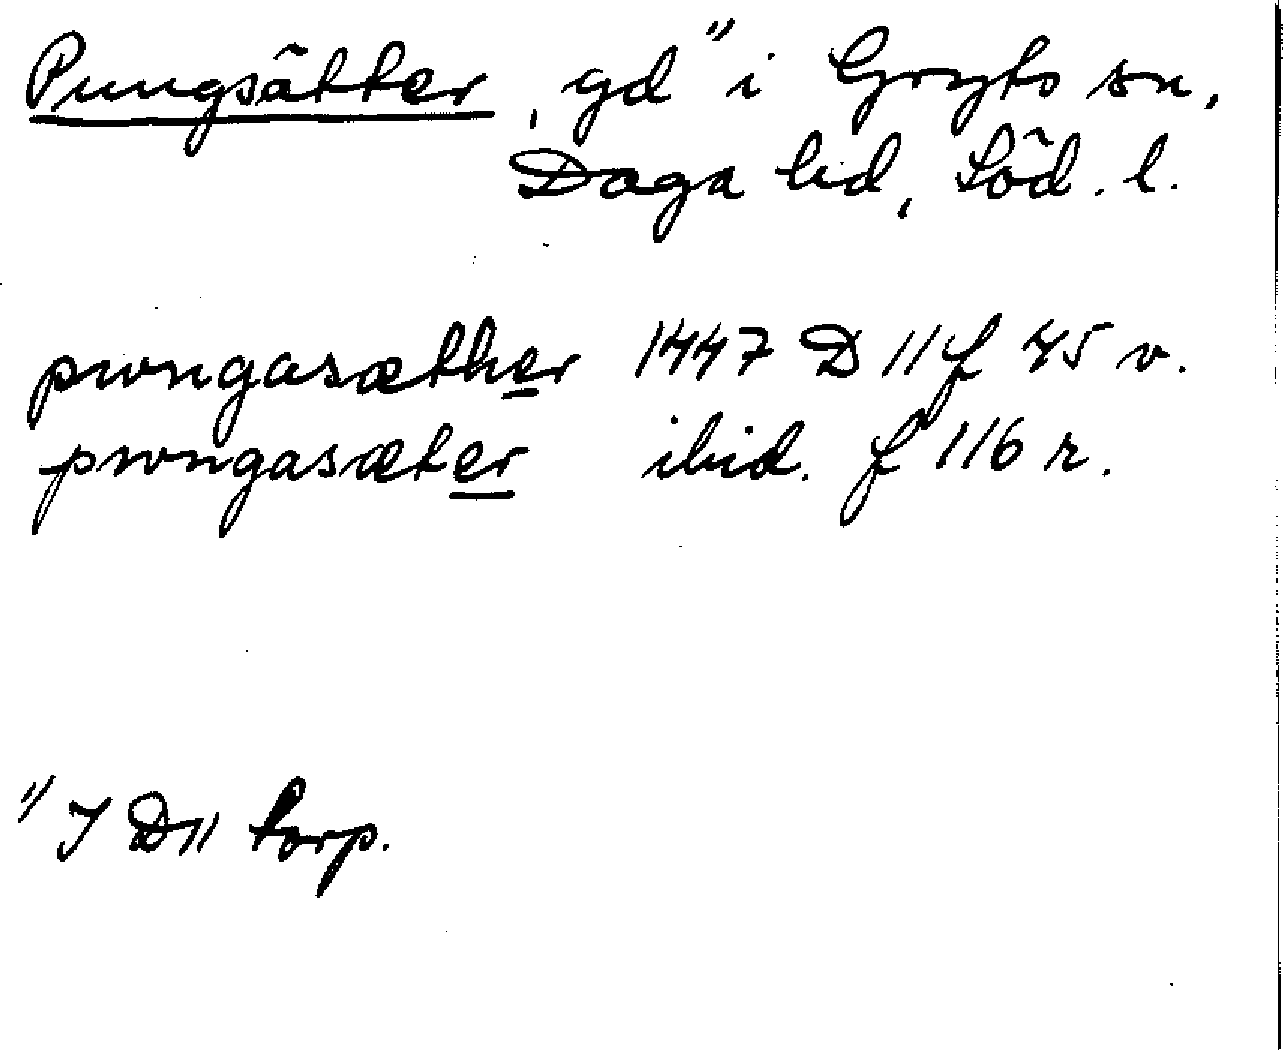 Pungsätter, gd 1) i Gryts sn,
Daga hd, Söd. l.
pwngasæther 1447 D 11 f 45 v.
pwngasæter ibid. f 116 r.
1) I D 11 torp.